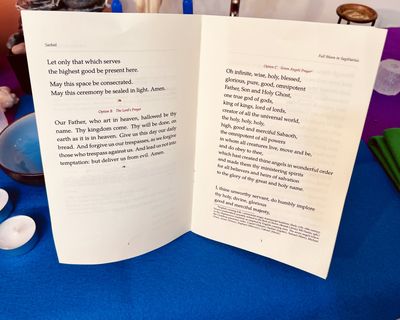 Sachiel
Let only that which serves
the highest good be present here.
May this space be consecrated.
May this ceremony be sealed in light. Amen.
Option B: The Lord's Prayer
Our Father, who art in heaven, hallowed be thy
name. Thy kingdom come. Thy will be done, on
earth as it is in heaven. Give us this day our daily
bread. And forgive us our trespasses, as we forgive
those who trespass against us. And lead us not into
temptation: but deliver us from evil. Amen.
Full Moon in Sagittarius
Option C: "Seven Angels Prayer"
Oh infinite, wise, holy, blessed,
glorious, pure, good, omnipotent
Father, Son and Holy Ghost,
one true god of gods,
king of kings, lord of lords,
creator of all the universal world,
the holy, holy, holy,
high, good and merciful Sabaoth,
the omnipotent of all powers
in whom all creatures live, move and be,
and do obey to thee,
which hast created thine angels in wonderful order
and made them thy ministering spirits
for all believers and heirs of salvation
to the glory of thy great and holy name.
I, thine unworthy servant, do humbly implore
thy holy, divine, glorious
good and merciful majesty,